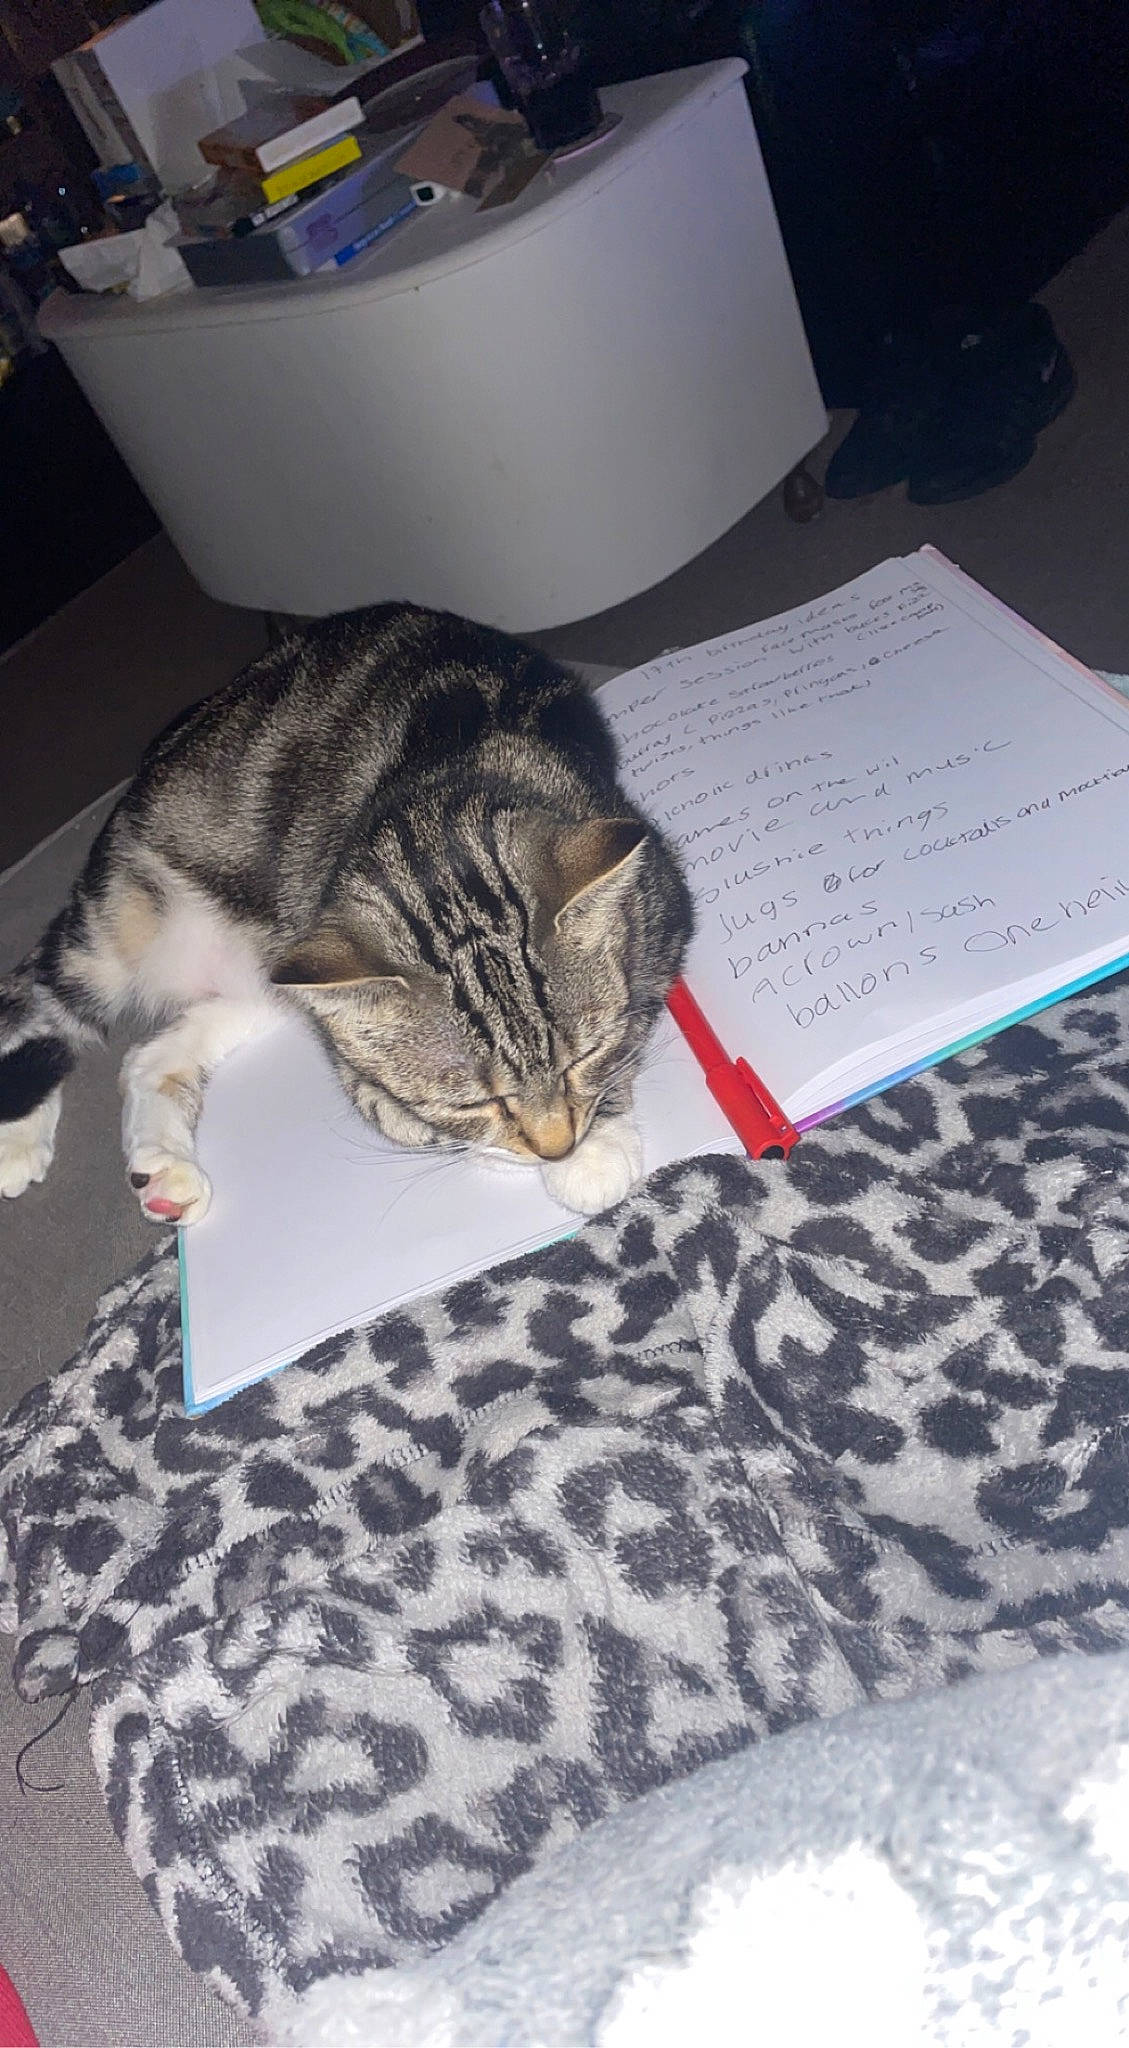 17th birthday ideas
mper session face masks for
hocolate strawberries with
buffay ( Pizzas, Pringals, Cheese
twists, things like that)
hors
lcholic drinks
ames on the wii
movie and music
plushie things
Jugs for cocktails and mocktai
bannas
A crown/sash
ballons one heii